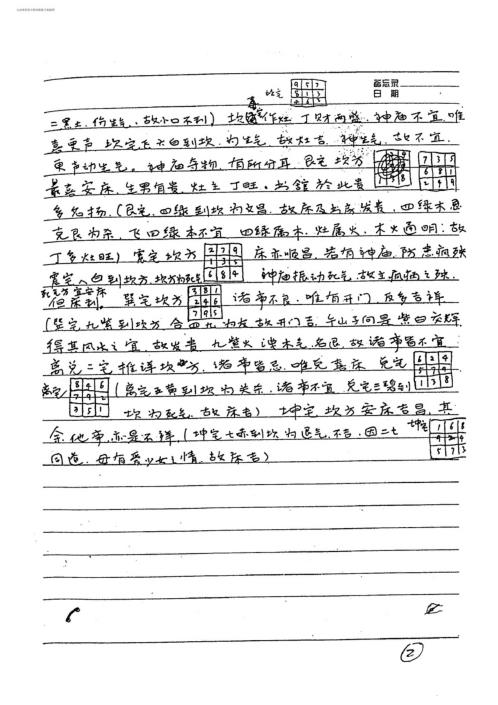 备忘录
日期
坎宅
9 5 7
8 1 3
4 6 2
二黑土，伤生气，故小口不利）坎宅作灶丁财两盛，神庙不宜，唯
喜更声 坎宅飞六白到坎，为生气，故灶吉，神生气，故不宜，
更声动生气。神庙等物，有所分耳，艮宅坎方
7 3 5
6 8 1
2 4 9
最喜安床，生男有贵，灶主丁旺。书舘於此贵
多名扬（艮宅，四绿到坎为文昌，故床及出房发贵，四绿木恩
克艮为杀，飞四绿本不宜 四绿属木，灶属火，木火通明；故
丁多灶旺）震宅坎方
2 7 9
1 3 5
6 8 4
床亦顺昌，若有神庙，防患疯残
震宅八白到坎方，坎方为死气
神庙振动死气，故主疯病之殃，
死气方宜安床
但床利。巽宅坎方
3 8 1
2 4 6
7 9 5
诸事不良，唯有开门，反多吉祥
（巽宅九紫到坎方，合四九为友故开门吉，午山子向是紫白交辉，
得其风水之宜，故发贵，九紫火洩木气，名退，故诸事皆不宜，
离兑二宅推详坎方，诸事皆忌，唯兑喜床，兑宅
6 2 4
5 7 9
1 3 8
离宅
8 4 6
7 9 2
3 5 1
（离宅五黄到坎为关杀，诸事不宜，兑宅三碧到
坎为死气，故床吉） 坤宅坎方安床吉昌，其
余他事，亦是不祥，（坤宅七赤到坎为退气，不吉，因二七
同道，母有爱少女之情，故床吉）
坤宅
1 6 8
9 2 4
5 7 3
2